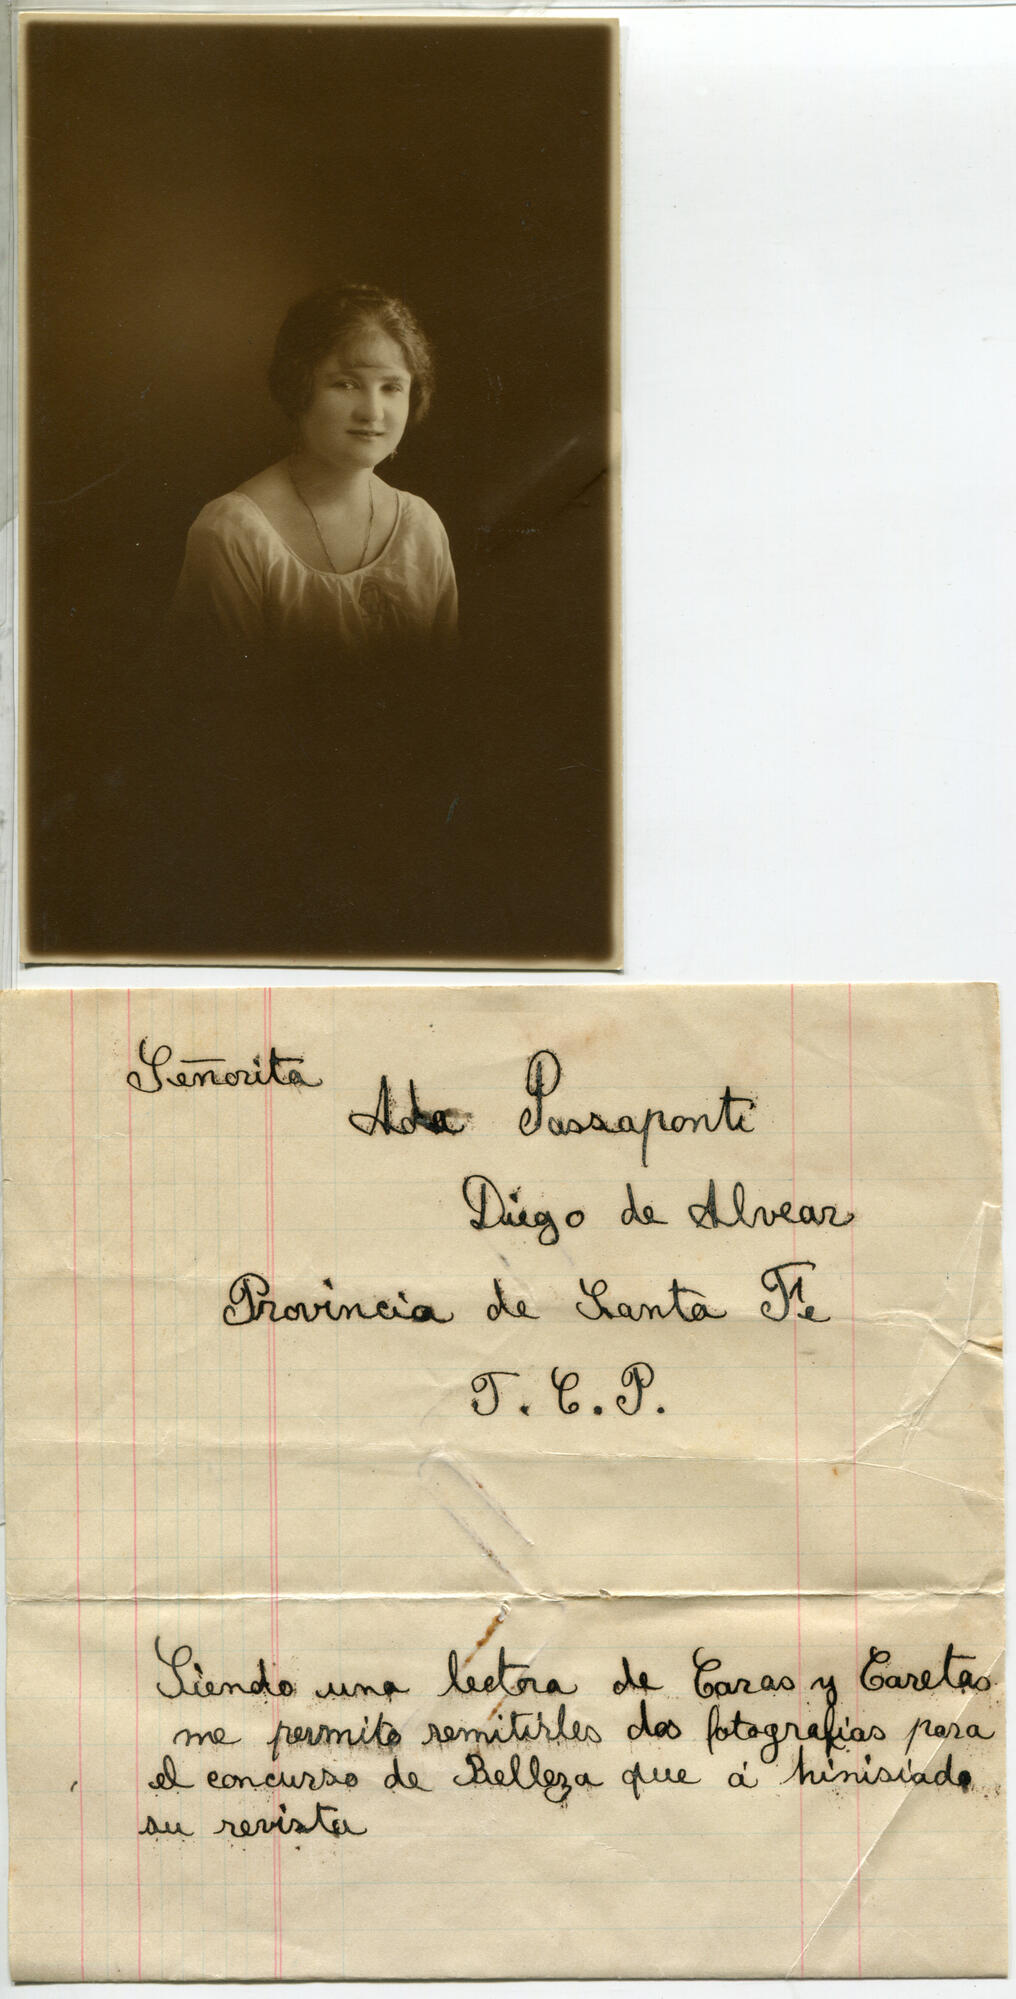 Señorita
Ada Passaponti
Diego de Alvear
Provincia de Santa Fe
F. C. P.
Siendo una lectora de Caras y Caretas
me permito remitirles dos fotografias para
el concurso de Belleza que á hinisiado
su revista